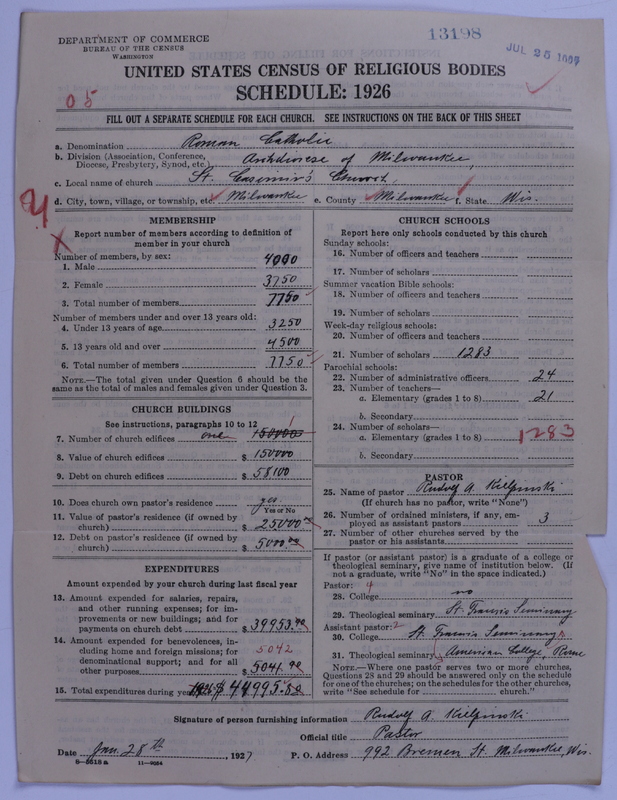 13198
JUL 25
DEPARTMENT OF COMMERCE
BUREAU OF THE CENSUS
WASHINGTON
UNITED STATES CENSUS OF RELIGIOUS BODIES
SCHEDULE: 1926
05
FILL OUT A SEPARATE SCHEDULE FOR EACH CHURCH. SEE INSTRUCTIONS ON THE BACK OF THIS SHEET
a. Denomination Roman Catholic
b. Division (Association, Conference, Diocese, Presbytery, Synod, etc.) Archdiocese of Milwaukee
c. Local name of church St. Casimir's Church
d. City, town, village, or township, etc. Milwaukee e. County Milwaukee f. State Wis.
MEMBERSHIP
Report number of members according to definition of
member in your church
Number of members, by sex:
1. Male 4000
2. Female 3750
3. Total number of members 7750
Number of members under and over 13 years old:
4. Under 13 years of age 3250
5. 13 years old and over 4500
6. Total number of members 7750
NOTE.—The total given under Question 6 should be the
same as the total of males and females given under Question 3.
CHURCH BUILDINGS
See instructions, paragraphs 10 to 12
7. Number of church edifices one 150000 1
8. Value of church edifices $ 150000
9. Debt on church edifices $ 58100
10. Does church own pastor's residence yes
Yes or No
11. Value of pastor's residence (if owned by
church) $ 25000.00
12. Debt on pastor's residence (if owned by
church) $ 5000.00
EXPENDITURES
Amount expended by your church during last fiscal year
13. Amount expended for salaries, repairs,
and other running expenses; for im-
provements or new buildings; and for
payments on church debt $ 39953.90
14. Amount expended for benevolences, in-
cluding home and foreign missions; for
denominational support; and for all
other purposes 5042 $ 5041.98
15. Total expenditures during year $ 44995.88
CHURCH SCHOOLS
Report here only schools conducted by this church
Sunday schools:
16. Number of officers and teachers
17. Number of scholars
Summer vacation Bible schools:
18. Number of officers and teachers
19. Number of scholars
Week-day religious schools:
20. Number of officers and teachers
21. Number of scholars 1283
Parochial schools:
22. Number of administrative officers 24
23. Number of teachers—
a. Elementary (grades 1 to 8) 21
b. Secondary
24. Number of scholars—
a. Elementary (grades 1 to 8) 1283
b. Secondary
PASTOR
25. Name of pastor Rudolf A. Kielpinski
(If church has no pastor, write "None")
26. Number of ordained ministers, if any, em-
ployed as assistant pastors 3
27. Number of other churches served by the
pastor or his assistants
If pastor (or assistant pastor) is a graduate of a college or
theological seminary, give name of institution below. (If
not a graduate, write "No" in the space indicated.)
Pastor: 4
28. College no
29. Theological seminary St. Francis Seminary
Assistant pastor: 2
30. College St. Francis Seminary
31. Theological seminary American College, Rome
NOTE.—Where one pastor serves two or more churches,
Questions 28 and 29 should be answered only on the schedule
for one of the churches; on the schedules for the other churches,
write "See schedule for church."
Signature of person furnishing information Rudolf A. Kielpinski
Official title Pastor
Date Jan. 28th, 1927 P. O. Address 992 Bremen St. Milwaukee, Wis.
8—5518a 11—9084